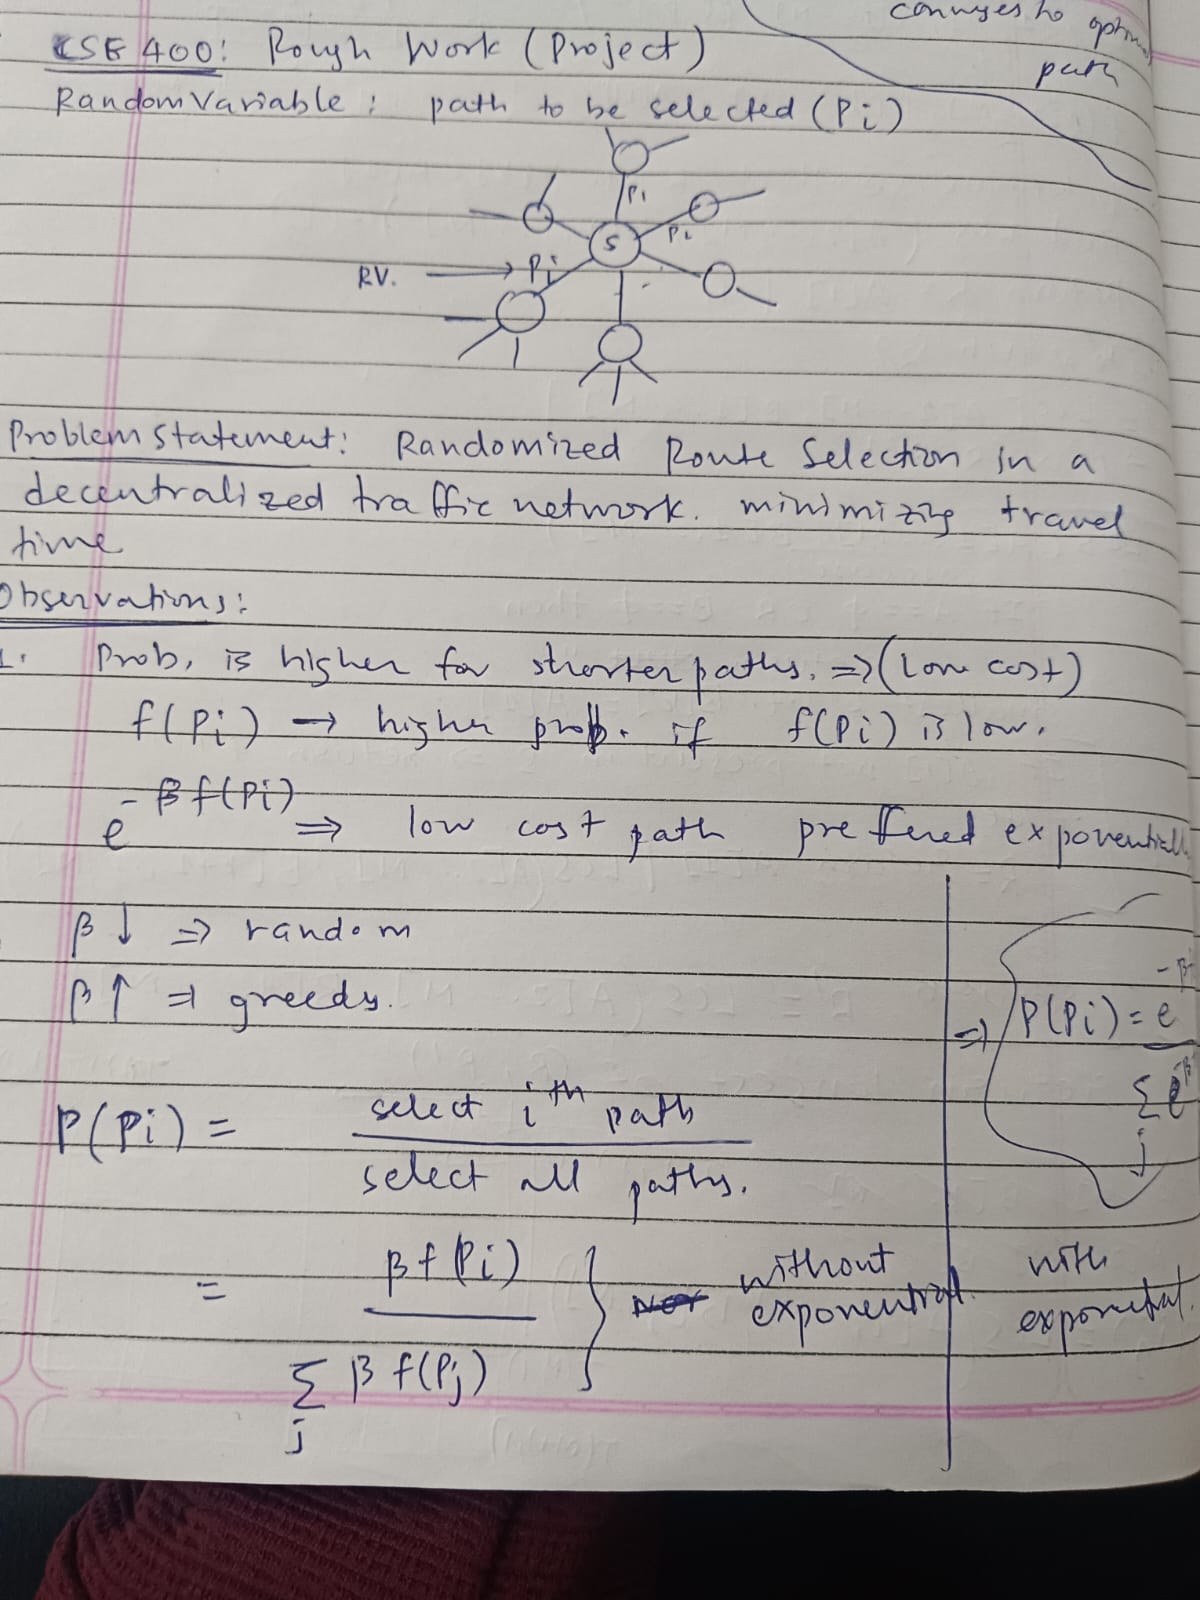 conv​erges to optim
path
CSE 400: Rough Work (Project)
Random Variable : path to be selected (Pi)
P1
P2
S
RV. → Pi
Problem statement: Randomized Route Selection in a
decentralized traffic network. minimizing travel
time
Observations:
1. Prob. is higher for shorter paths. => (low cost)
f(Pi) → higher prob. if f(Pi) is low.
e^-βf(Pi) => low cost path preffered exponentiall
β ↓ => random
β ↑ => greedy.
P(Pi) = select ith path / select all paths.
= βf(Pi) / Σj βf(Pj) } without exponential.
=> P(Pi) = e^-β / Σj e^-β
with
exponential.